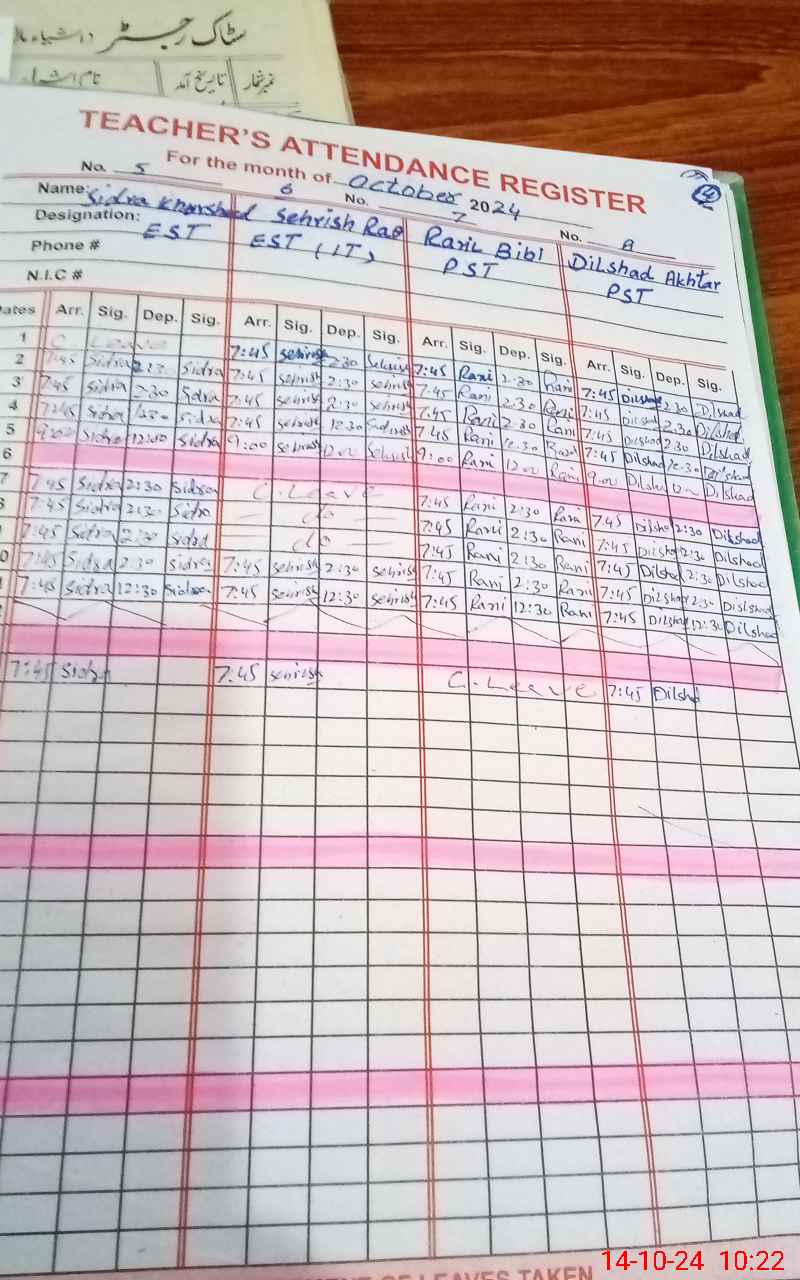 سٹاک رجسٹر
نمبر شمار تاریخ آمد نام اشیاء
TEACHER'S ATTENDANCE REGISTER
For the month of October 2024
No. 5 6 No. 7 No. 8
Name: Sidra Khurshed Sehrish Rao Rani Bibi Dilshad Akhtar
Designation: EST EST (IT) PST PST
Phone #
N.I.C #
Dates Arr. Sig. Dep. Sig. Arr. Sig. Dep. Sig. Arr. Sig. Dep. Sig. Arr. Sig. Dep. Sig.
1 C Leave 7:45 Sehrish 2:30 Sehrish 7:45 Rani 2:30 Rani 7:45 Dilshad 2:30 Dilshad
2 7:45 Sidra 2:30 Sidra 7:45 Sehrish 2:30 Sehrish 7:45 Rani 2:30 Rani 7:45 Dilshad 2:30 Dilshad
3 7:45 Sidra 2:30 Sidra 7:45 Sehrish 2:30 Sehrish 7:45 Rani 2:30 Rani 7:45 Dilshad 2:30 Dilshad
4 7:45 Sidra 12:30 Sidra 7:45 Sehrish 12:30 Sehrish 7:45 Rani 12:30 Rani 7:45 Dilshad 12:30 Dilshad
5 9:00 Sidra 12:00 Sidra 9:00 Sehrish 12:00 Sehrish 9:00 Rani 12:00 Rani 9:00 Dilshad 12:00 Dilshad
6
7 7:45 Sidra 2:30 Sidra C. Leave 7:45 Rani 2:30 Rani 7:45 Dilshad 2:30 Dilshad
7:45 Sidra 2:30 Sidra — do — 7:45 Rani 2:30 Rani 7:45 Dilshad 2:30 Dilshad
7:45 Sidra 2:30 Sidra — do — 7:45 Rani 2:30 Rani 7:45 Dilshad 2:30 Dilshad
0 7:45 Sidra 2:30 Sidra 7:45 Sehrish 2:30 Sehrish 7:45 Rani 2:30 Rani 7:45 Dilshad 2:30 Dilshad
7:45 Sidra 12:30 Sidra 7:45 Sehrish 12:30 Sehrish 7:45 Rani 12:30 Rani 7:45 Dilshad 12:30 Dilshad
7:45 Sidra 7:45 Sehrish C. Leave 7:45 Dilshad
OF LEAVES TAKEN
14-10-24 10:22